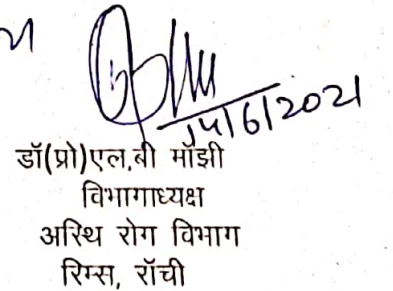 14/6/2021
डॉ(प्रो)एल.बी मॉझी
विभागाध्यक्ष
अस्थि रोग विभाग
रिम्स, रॉची